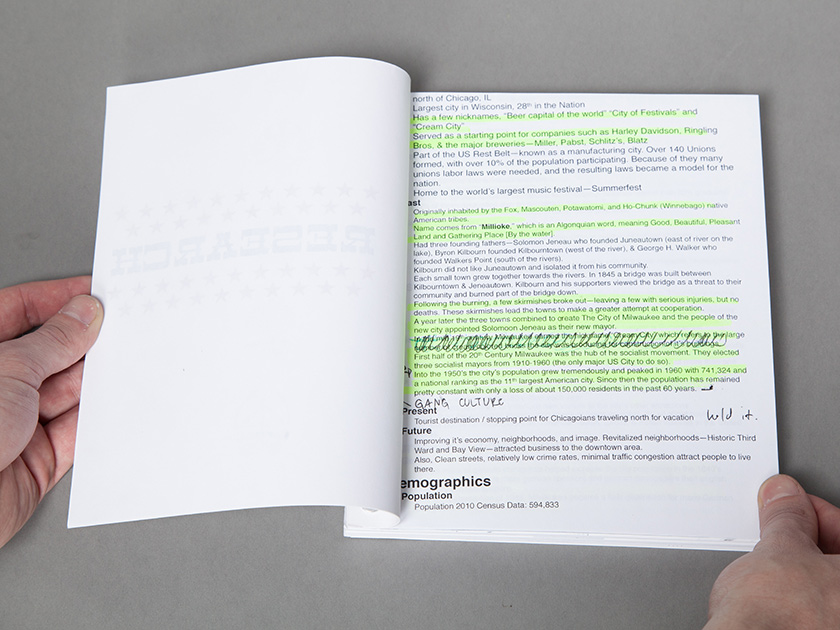 RESEARCH
north of Chicago, IL
Largest city in Wisconsin, 28th in the Nation
Has a few nicknames, “Beer capital of the world” “City of Festivals” and
“Cream City”
Served as a starting point for companies such as Harley Davidson, Ringling
Bros, & the major breweries—Miller, Pabst, Schlitz’s, Blatz
Part of the US Rest Belt—known as a manufacturing city. Over 140 Unions
formed, with over 10% of the population participating. Because of they many
unions labor laws were needed, and the resulting laws became a model for the
nation.
Home to the world’s largest music festival—Summerfest
ast
Originally inhabited by the Fox, Mascouten, Potawatomi, and Ho-Chunk (Winnebago) native
American tribes.
Name comes from “Millioke,” which is an Algonquian word, meaning Good, Beautiful, Pleasant
Land and Gathering Place [By the water].
Had three founding fathers—Solomon Jeneau who founded Juneautown (east of river on the
lake), Byron Kilbourn founded Kilbourntown (west of the river), & George H. Walker who
founded Walkers Point (south of the rivers).
Kilbourn did not like Juneautown and isolated it from his community.
Each small town grew together towards the rivers. In 1845 a bridge was built between
Kilbourntown & Jeneautown. Kilbourn and his supporters viewed the bridge as a threat to their
community and burned part of the bridge down.
Following the burning, a few skirmishes broke out—leaving a few with serious injuries, but no
deaths. These skirmishes lead the towns to make a greater attempt at cooperation.
A year later the three towns combined to create The City of Milwaukee and the people of the
new city appointed Solomoon Jeneau as their new mayor.
large
First half of the 20th Century Milwaukee was the hub of he socialist movement. They elected
three socialist mayors from 1910-1960 (the only major US City to do so).
Into the 1950’s the city’s population grew tremendously and peaked in 1960 with 741,324 and
a national ranking as the 11th largest American city. Since then the population has remained
pretty constant with only a loss of about 150,000 residents in the past 60 years.
GANG CULTURE
Present
Tourist destination / stopping point for Chicagoans traveling north for vacation
Future
Improving it’s economy, neighborhoods, and image. Revitalized neighborhoods—Historic Third
Ward and Bay View—attracted business to the downtown area.
Also, Clean streets, relatively low crime rates, minimal traffic congestion attract people to live
there.
emographics
Population
Population 2010 Census Data: 594,833